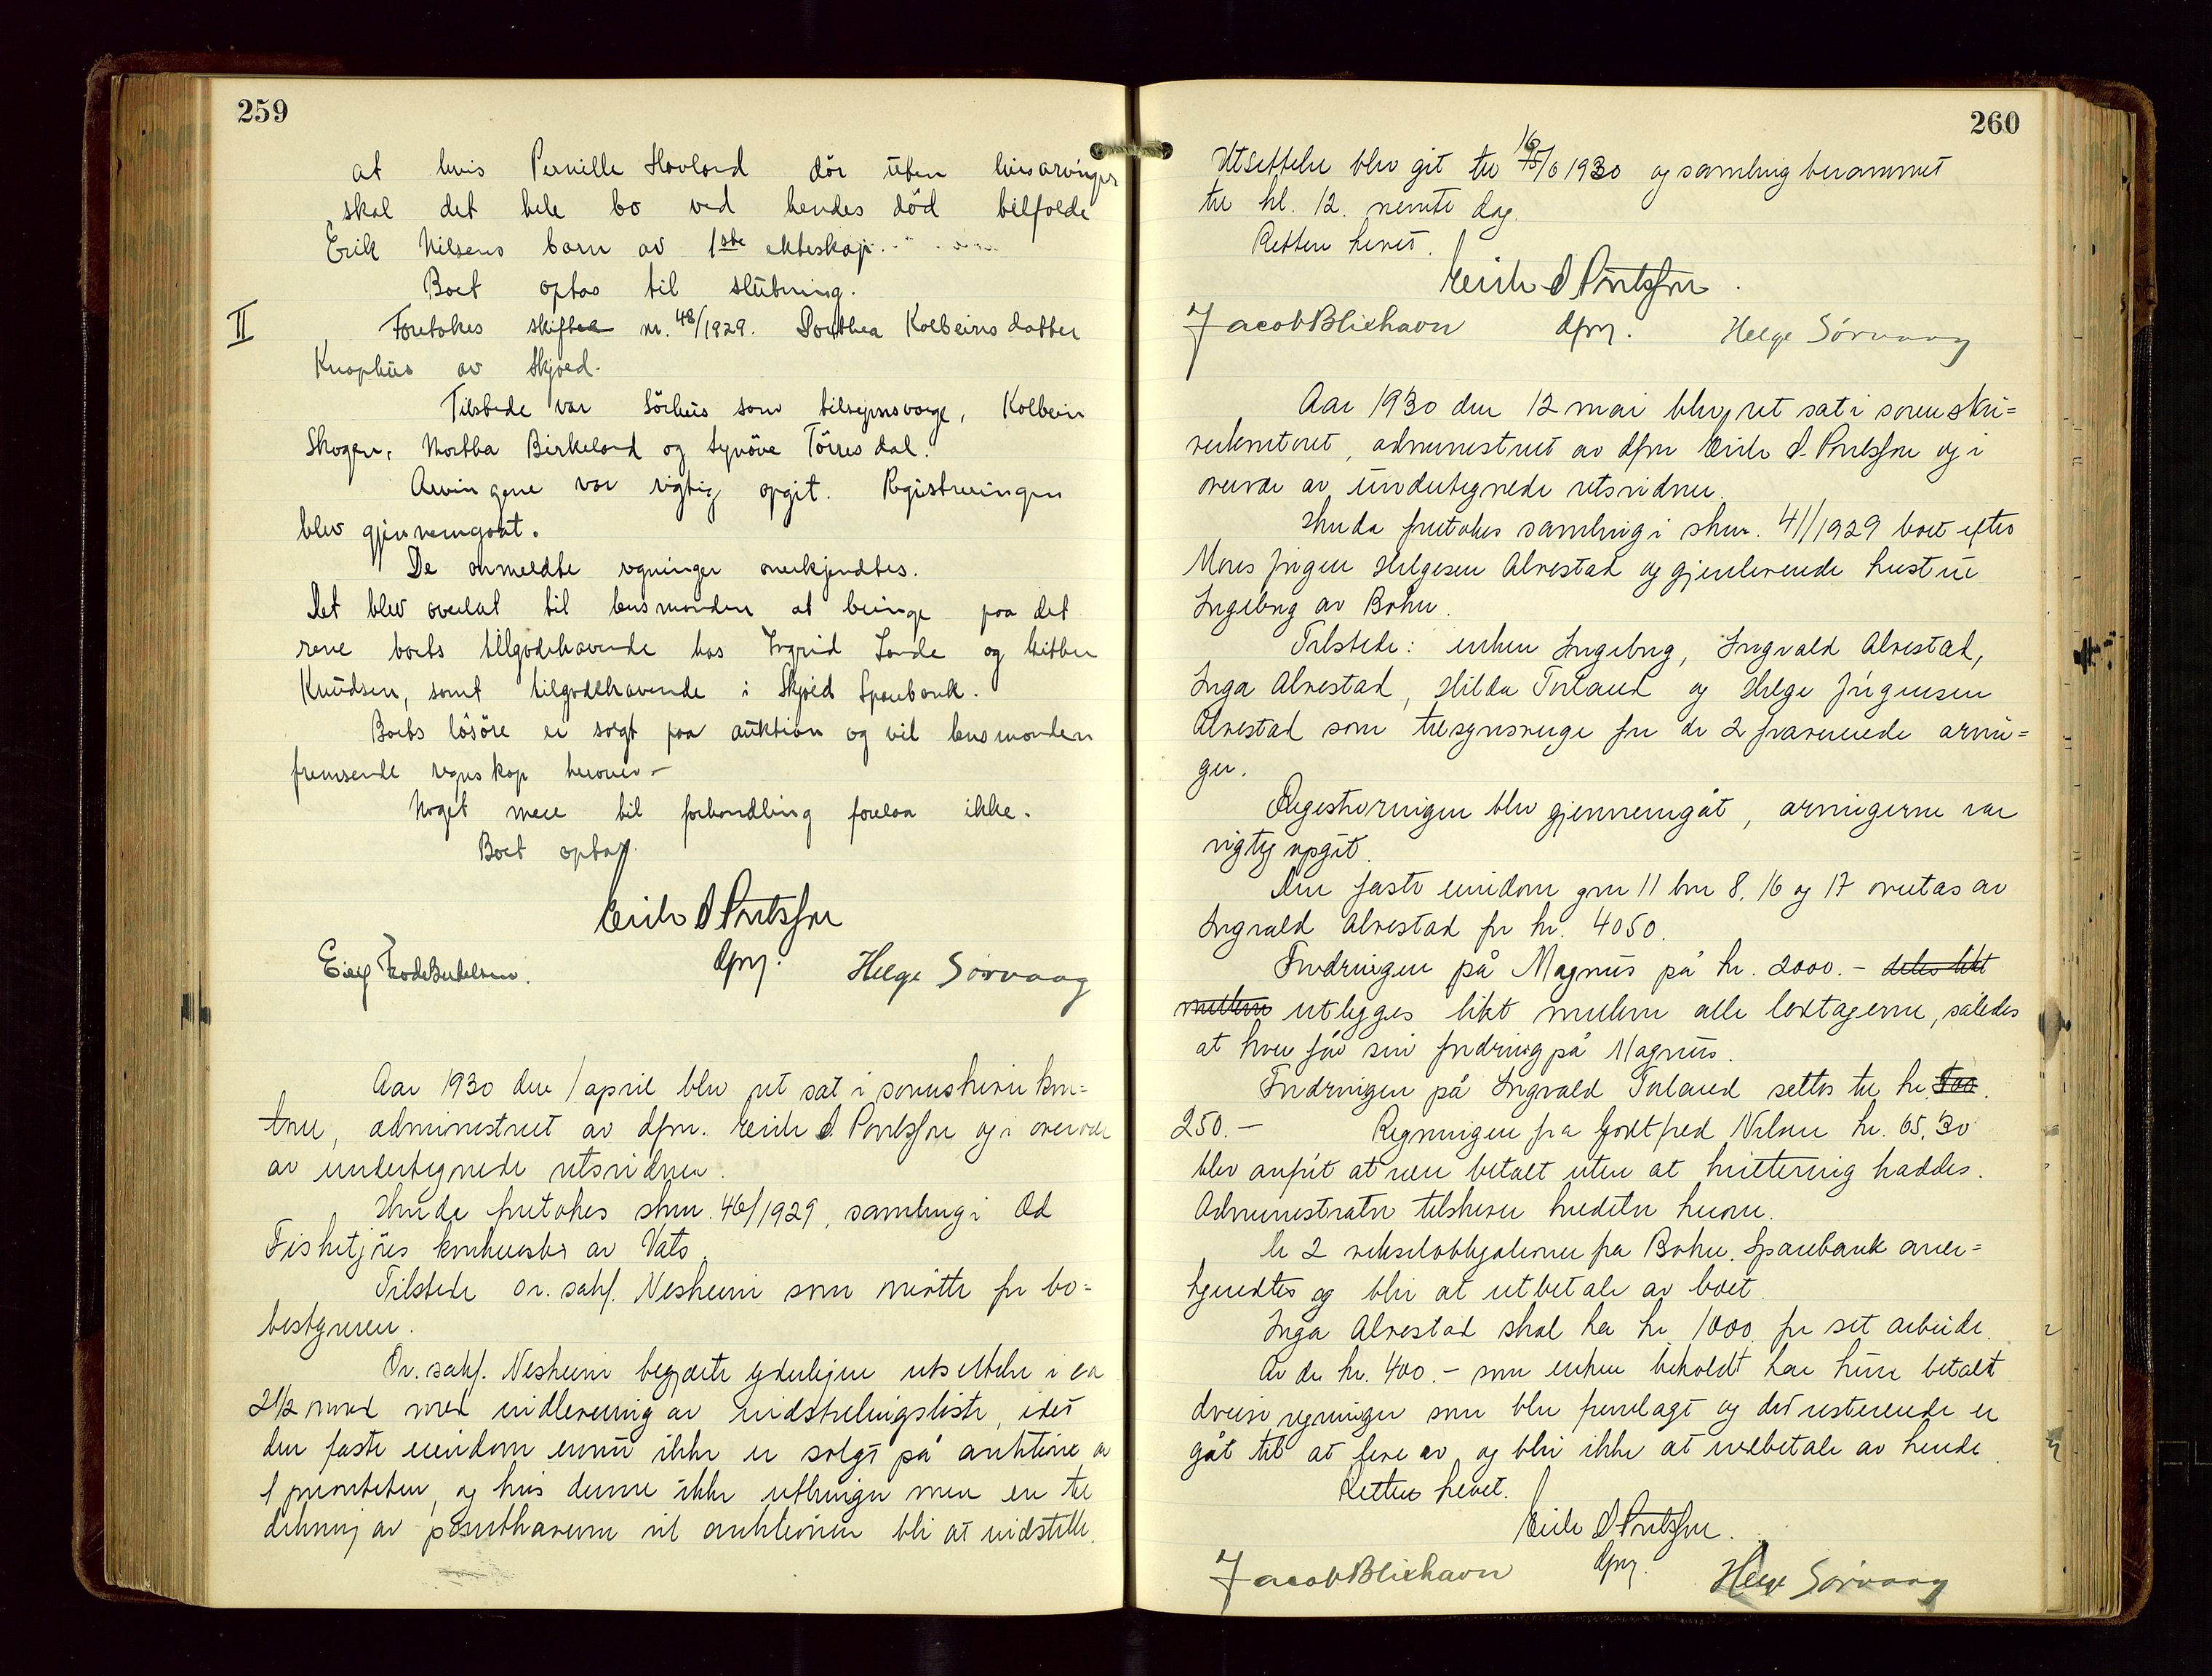 259
at hvis Pernille Hovland dör uten livsarvinger
skal det hele bo ved hendes död tilfalde
Erik Nilsens barn av 1ste ekteskap.
Boet optas til slutning.
II
Foretokes skifte nr. 48/1929. Dorthea Kolbeinsdatter
Knaphus av Skjold.
Tilstede var Sörhus som tilsynsverge, Kolbein
Skogen, Martha Birkeland og Synöve Törresdal.
Arvingene var rigtig opgit. Registreringen
blev gjennemgaat.
De anmeldte regninger anerkjendtes.
Det blev overlat til lensmanden at bringe paa det
rene boets tilgodehavende hos Ingrid Lande og
Knudsen, samt tilgodehavende i Skjold Sparebank.
Boets lösöre er solgt paa auktion og vil lensmanden
fremsende regnskap herover.-
Noget mere til forhandling forelaa ikke.
Boet optas.
Erik S Poulsson
dfm.
Helge Sörvaag
Aar 1930 den 1 april blev ret sat i sorenskriverkon=
toret, administreret av dfm. Erik S. Poulsson og i overvær
av undertegnede retsvidner.
Herunder foretokes sknr. 46/1929, samling i Od
Fisketjöns konkursbo av Vats.
Tilstede o.r. sakf. Nesheim som mötte for bo=
bestyreren.
O.r. sakf. Nesheim begjærte yderligere utsettelse i ca
2 1/2 mnd med indlevering av indstillingsliste, idet
den faste eiendom ennu ikke er solgt på auktion av
1 prioriteten, og hvis denne ikke utbringer mer en til
dekning av panthaverne vil auktionen bli at indstille.
260
Utsettelse blev git til 16/6 1930 og samling berammet
til kl. 12. nevnte dag.
Retten hevet.
Erik S Poulsson.
Jacob Blixhavn
dfm.
Helge Sörvaag
Aar 1930 den 12 mai blev ret sat i sorenskri=
verkontoret, administreret av dfm Erik S. Poulsson og i
overvær av undertegnede retsvidner.
Herunder foretokes samling i sknr. 41/1929 boet efter
Mons Jörgen Helgesen Alvestad og gjenlevende hustru
Ingeborg av Bokn.
Tilstede: enken Ingeborg, Ingvald Alvestad,
Inga Alvestad, Hilda Torland og Helge Jörgensen
Alvestad som tilsynsverge for de 2 fraværende arvin=
ger.
Registreringen blev gjennemgåt, arvingerne var
rigtig opgit.
Den faste eiendom gnr 11 bnr 8, 16 og 17 overtas av
Ingvald Alvestad for kr. 4050.
Fordringen på Magnus på kr. 2000.- deles likt
mellem utlegges likt mellem alle loddtagerne, således
at hver får sin fordring på Magnus.
Fordringen på Ingvald Torland settes til kr.
250.- Regningen fra Godtfred Nilsen kr. 65,30
blev anfört at være betalt uten at kvittering haddes.
Administrator tilskriver kreditor herom.
De 2 vekselobligationer fra Bokn Sparebank aner=
kjendtes og blir at utbetale av boet.
Inga Alvestad skal ha kr 1000. for sit arbeide.
Av de kr. 400.- som enken beholdt har hun betalt
diverse regninger som blev fremlagt og det resterende er
gåt til at leve av og blir ikke at indbetale av hende.
Retten hevet.
Erik S Poulsson.
Jacob Blixhavn
dfm.
Helge Sörvaag